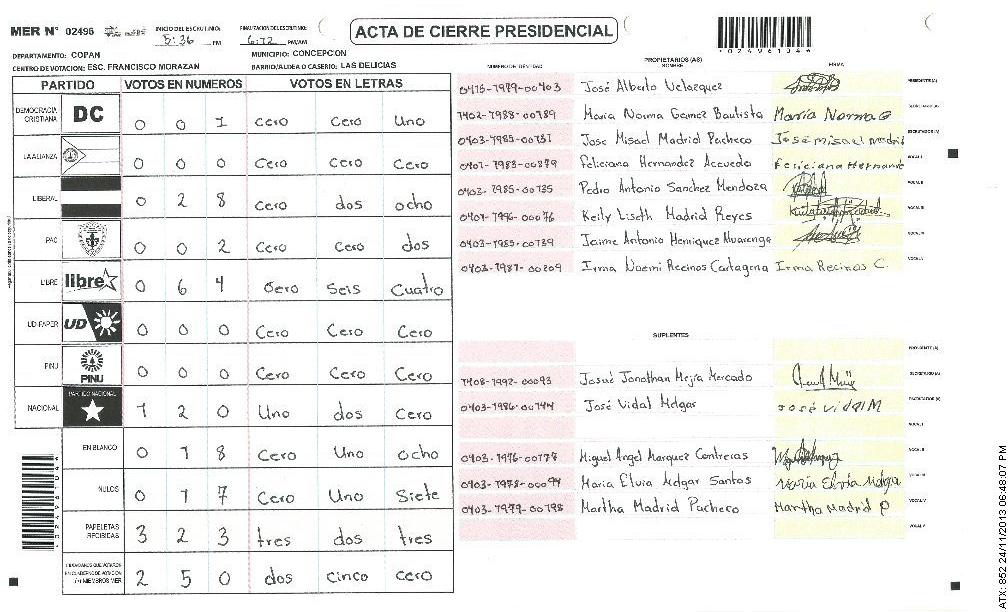 MER N° 02496
INICIO DEL ESCRUTINIO: 5:36 PM
FINALIZACION DEL ESCRUTINIO: 6:12 PM/AM
ACTA DE CIERRE PRESIDENCIAL
DEPARTAMENTO: COPAN
MUNICIPIO: CONCEPCION
CENTRO DE VOTACION: ESC. FRANCISCO MORAZAN
BARRIO/ALDEA O CASERIO: LAS DELICIAS
PARTIDO VOTOS EN NUMEROS VOTOS EN LETRAS
DEMOCRACIA CRISTIANA DC 0 0 1 Cero Cero Uno
LA ALIANZA 0 0 0 Cero Cero Cero
LIBERAL 0 2 8 Cero dos ocho
PAC 0 0 2 Cero Cero dos
LIBRE libre 0 6 4 Cero Seis Cuatro
UD-FAPER UD 0 0 0 Cero Cero Cero
PINU PINU 0 0 0 Cero Cero Cero
NACIONAL PARTIDO NACIONAL 1 2 0 Uno dos Cero
EN BLANCO 0 1 8 Cero Uno ocho
NULOS 0 1 7 Cero Uno Siete
PAPELETAS RECIBIDAS 3 2 3 tres dos tres
CIUDADANOS QUE VOTARON EN CUADERNO DE VOTACION Y/O MIEMBROS MER 2 5 0 dos cinco cero
PROPIETARIOS (AS)
NUMERO DE IDENTIDAD NOMBRE FIRMA
0415-1989-00403 José Alberto Velazquez PRESIDENTE (A)
1402-1988-00189 Maria Norma Gamez Bautista Maria Norma G SECRETARIO (A)
0403-1985-00131 Jose Misael Madrid Pacheco José misael madrid ESCRUTADOR (A)
0401-1983-00879 Feliciana Hernandez Acevedo Feliciana Hernande VOCAL I
0403-1985-00135 Pedro Antonio Sanchez Mendoza VOCAL II
0401-1996-00076 Keily Liseth Madrid Reyes VOCAL III
0403-1985-00139 Jaime Antonio Henriquez Alvarenga VOCAL IV
0403-1987-00209 Irma Noemi Recinos Cartagena Irma Recinos C. VOCAL V
SUPLENTES
PRESIDENTE (A)
1408-1992-00093 Josué Jonathan Mejía Mercado SECRETARIO (A)
0403-1986-00144 José Vidal Melgar José Vidal M ESCRUTADOR (A)
VOCAL I
0403-1976-00178 Miguel Angel Marquez Contreras VOCAL II
0403-1978-00094 Maria Elvia Melgar Santos Maria Elvia Melgar VOCAL III
0403-1979-00198 Martha Madrid Pacheco Martha Madrid P VOCAL IV
VOCAL V
ATX: 852 24/11/2013 06:48:07 PM